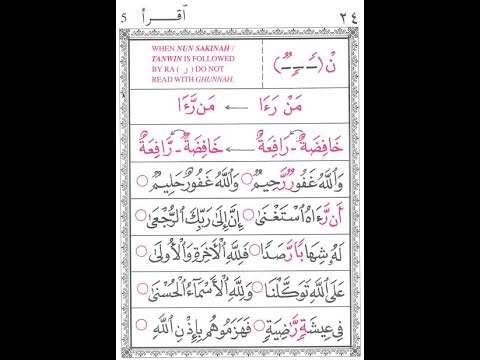 ٢٤ اقرأ 5
نْ (ـًـ ـٍـ ـٌـ)
WHEN NUN SAKINAH /
TANWIN IS FOLLOWED
BY RA ( ر ) DO NOT
READ WITH GHUNNAH.
مَنْ رَءَا ← مَن رَّءَا
خَافِضَةٌ - رَافِعَةٌ ← خَافِضَةٌ - رَّافِعَةٌ
وَاللَّهُ غَفُورٌ رَّحِيمٌ ○ وَاللَّهُ غَفُورٌ حَلِيمٌ ○
أَن رَّءَاهُ اسْتَغْنَىٰ ○ إِنَّ إِلَىٰ رَبِّكَ الرُّجْعَىٰ ○
لَهُ شِهَابًا رَّصَدًا ○ فَلِلَّهِ الْأَخِرَةُ وَالْأُولَىٰ ○
عَلَى اللَّهِ تَوَكَّلْنَا ○ وَلِلَّهِ الْأَسْمَاءُ الْحُسْنَىٰ ○
فِي عِيشَةٍ رَّاضِيَةٍ ○ فَهَزَمُوهُم بِإِذْنِ اللَّهِ ○